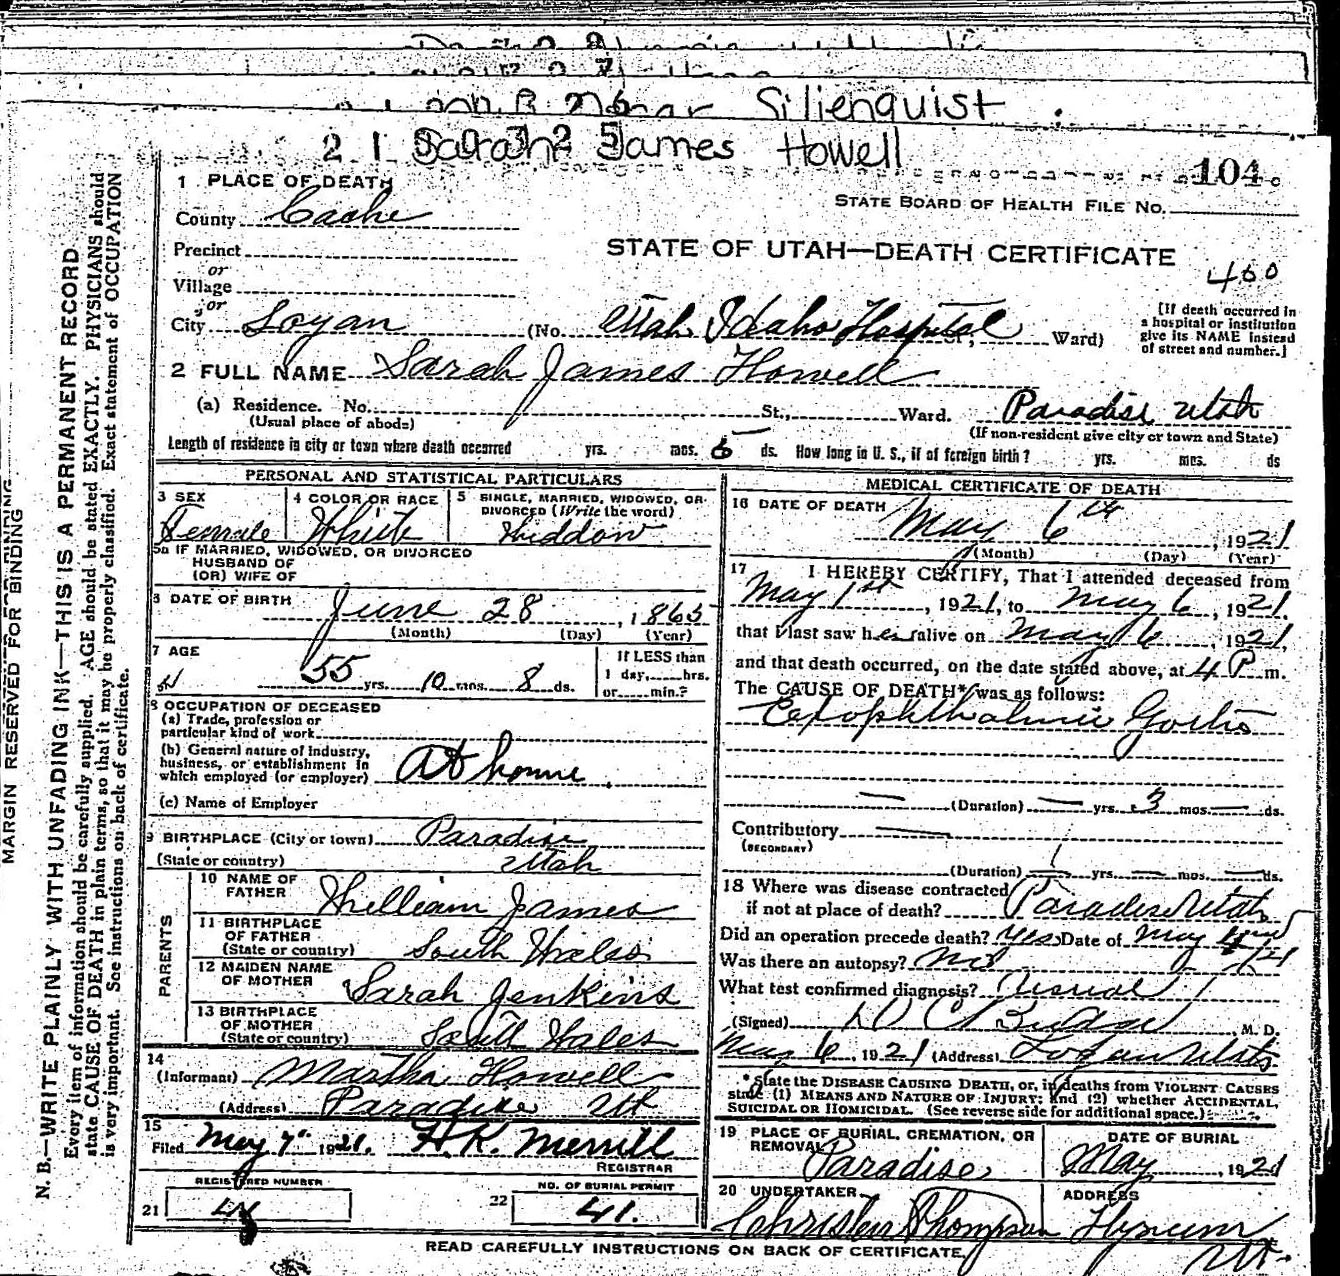 Silienquist
Sarah James Howell
104
1 PLACE OF DEATH
STATE BOARD OF HEALTH FILE No.
County Cache
Precinct
STATE OF UTAH—DEATH CERTIFICATE
or
Village
460
or
City Logan (No. Utah Idaho Hospital St., Ward)
[If death occurred in
a hospital or institution
give its NAME instead
of street and number.]
2 FULL NAME Sarah James Howell
(a) Residence. No. St., Ward. Paradise Utah
(Usual place of abode)
(If non-resident give city or town and State)
Length of residence in city or town where death occurred yrs. mos. 5 ds. How long in U. S., if of foreign birth? yrs. mos. ds
PERSONAL AND STATISTICAL PARTICULARS
3 SEX
Female
4 COLOR OR RACE
White
5 SINGLE, MARRIED, WIDOWED, OR
DIVORCED (Write the word)
Widdow
5a IF MARRIED, WIDOWED, OR DIVORCED
HUSBAND OF
(OR) WIFE OF
DATE OF BIRTH
June 28, 1865
(Month) (Day) (Year)
7 AGE
55 yrs. 10 mos. 8 ds.
If LESS than
1 day, hrs.
or min.?
8 OCCUPATION OF DECEASED
(a) Trade, profession or
particular kind of work
(b) General nature of industry,
business, or establishment in
which employed (or employer) At home
(c) Name of Employer
9 BIRTHPLACE (City or town) Paradise
(State or country) Utah
PARENTS
10 NAME OF
FATHER William James
11 BIRTHPLACE
OF FATHER
(State or country) South Wales
12 MAIDEN NAME
OF MOTHER Sarah Jenkins
13 BIRTHPLACE
OF MOTHER
(State or country) South Wales
14
(Informant) Martha Howell
(Address) Paradise Ut
15
Filed May 7" 1921. H.K. Merrill
REGISTRAR
REGISTERED NUMBER
21
NO. OF BURIAL PERMIT
22 41.
MEDICAL CERTIFICATE OF DEATH
16 DATE OF DEATH
May 6th, 1921
(Month) (Day) (Year)
17 I HEREBY CERTIFY, That I attended deceased from
May 1st, 1921, to May 6, 1921,
that I last saw her alive on May 6, 1921,
and that death occurred, on the date stated above, at 4 P m.
The CAUSE OF DEATH* was as follows:
Exophthalmic Goitre
(Duration) yrs. 3 mos. ds.
Contributory
(SECONDARY)
(Duration) yrs. mos. ds.
18 Where was disease contracted
if not at place of death? Paradise Utah
Did an operation precede death? yes Date of May
Was there an autopsy? No
What test confirmed diagnosis?
(Signed) D C Budge, M. D.
May 6 1921 (Address) Logan Utah
*State the DISEASE CAUSING DEATH, or, in deaths from VIOLENT CAUSES
state (1) MEANS AND NATURE OF INJURY; and (2) whether ACCIDENTAL,
SUICIDAL OR HOMICIDAL. (See reverse side for additional space.)
19 PLACE OF BURIAL, CREMATION, OR
REMOVAL
Paradise
DATE OF BURIAL
May, 1921
20 UNDERTAKER
Christen Thompson
ADDRESS
Hyrum
Ut.
READ CAREFULLY INSTRUCTIONS ON BACK OF CERTIFICATE.
MARGIN RESERVED FOR BINDING
N. B.—WRITE PLAINLY WITH UNFADING INK—THIS IS A PERMANENT RECORD
Every item of information should be carefully supplied. AGE should be stated EXACTLY. PHYSICIANS should
state CAUSE OF DEATH in plain terms, so that it may be properly classified. Exact statement of OCCUPATION
is very important. See instructions on back of certificate.